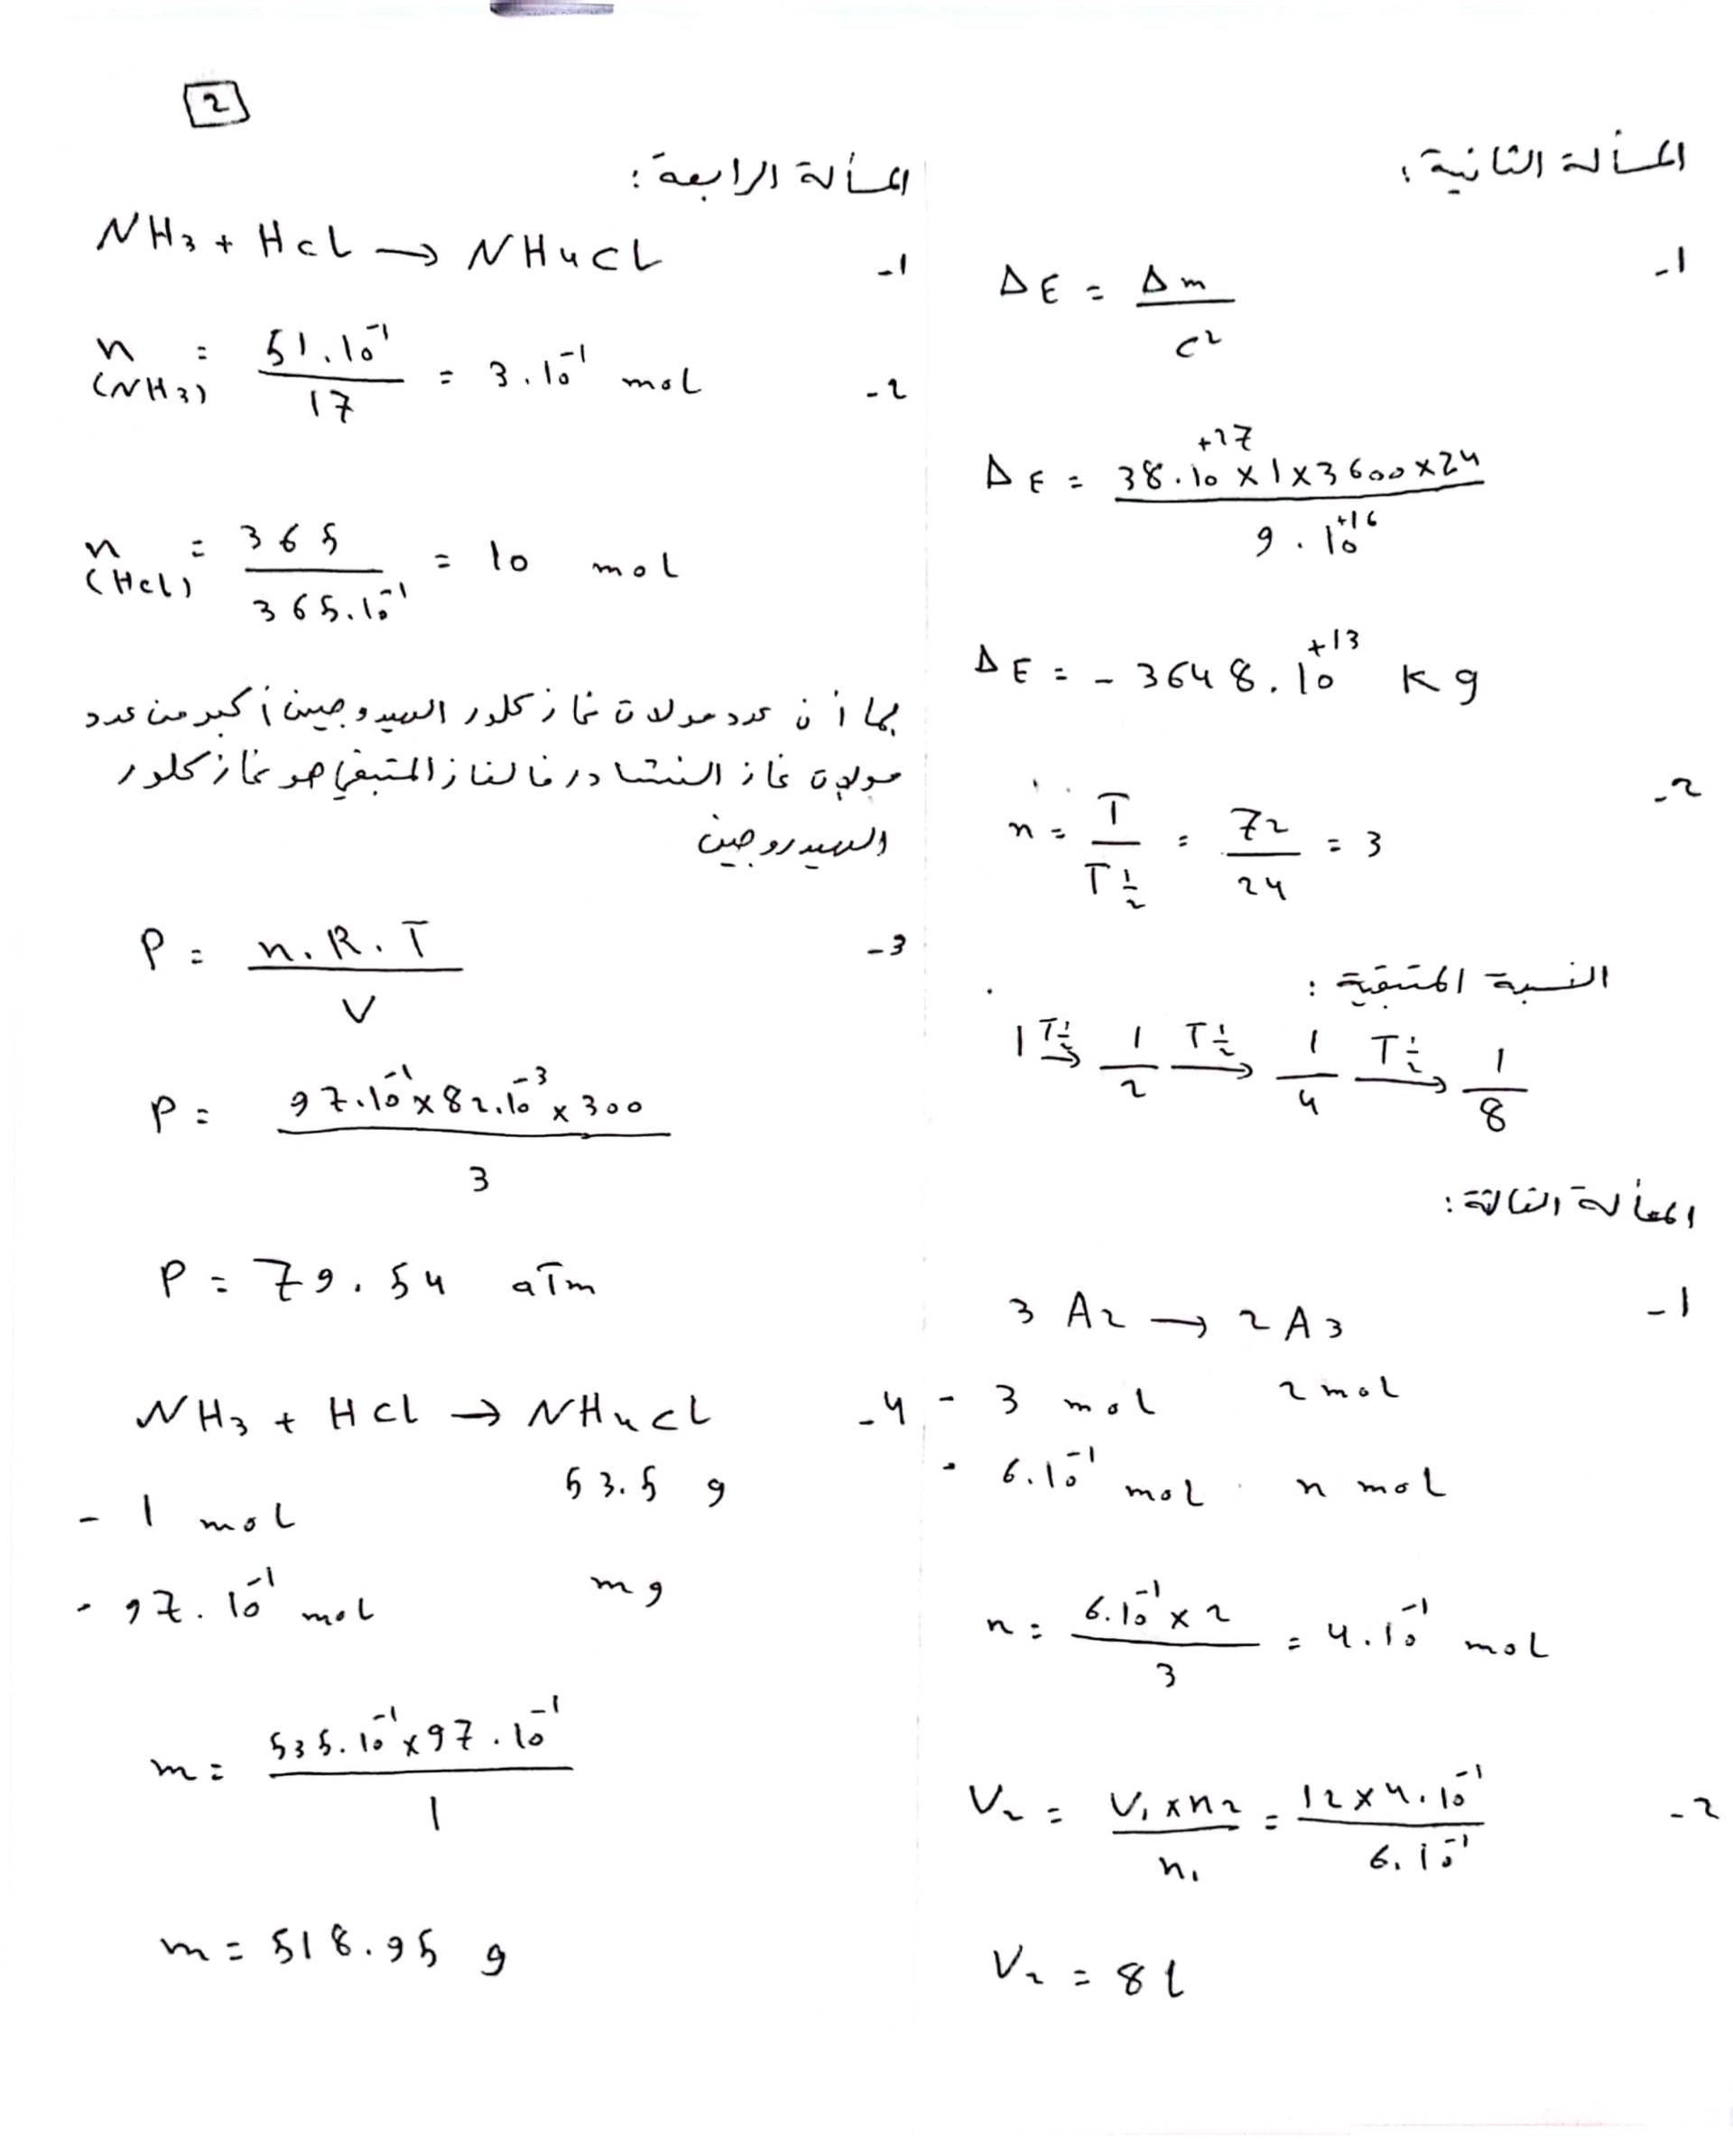 2
المسألة الثانية:
-1
ΔE = Δm / c²
ΔE = 38.10⁺²⁷ × 1 × 3600 × 24 / 9.10⁺¹⁶
ΔE = - 3648.10⁺¹³ Kg
-2
n = T / T½ = 72 / 24 = 3
النسبة المتبقية:
1 T½→ 1/2 T½→ 1/4 T½→ 1/8
المسألة الثالثة:
-1
3 A2 → 2 A3
- 3 mol 2 mol
- 6.10⁻¹ mol n mol
n = 6.10⁻¹ × 2 / 3 = 4.10⁻¹ mol
-2
V2 = V1 × n2 / n1 = 12 × 4.10⁻¹ / 6.10⁻¹
V2 = 8 l
المسألة الرابعة:
-1
NH3 + HCl → NH4Cl
-2
n (NH3) = 51.10⁻¹ / 17 = 3.10⁻¹ mol
n (HCl) = 365 / 365.10⁻¹ = 10 mol
بما أن عدد مولات غاز كلور الهيدروجين أكبر من عدد
مولات غاز النشادر فالغاز المتبقي هو غاز كلور
الهيدروجين
-3
P = n.R.T / V
P = 97.10⁻¹ × 82.10⁻³ × 300 / 3
P = 79.54 aTm
-4
NH3 + HCl → NH4Cl
- 1 mol 53.5 g
- 97.10⁻¹ mol m g
m = 535.10⁻¹ × 97.10⁻¹ / 1
m = 518.95 g